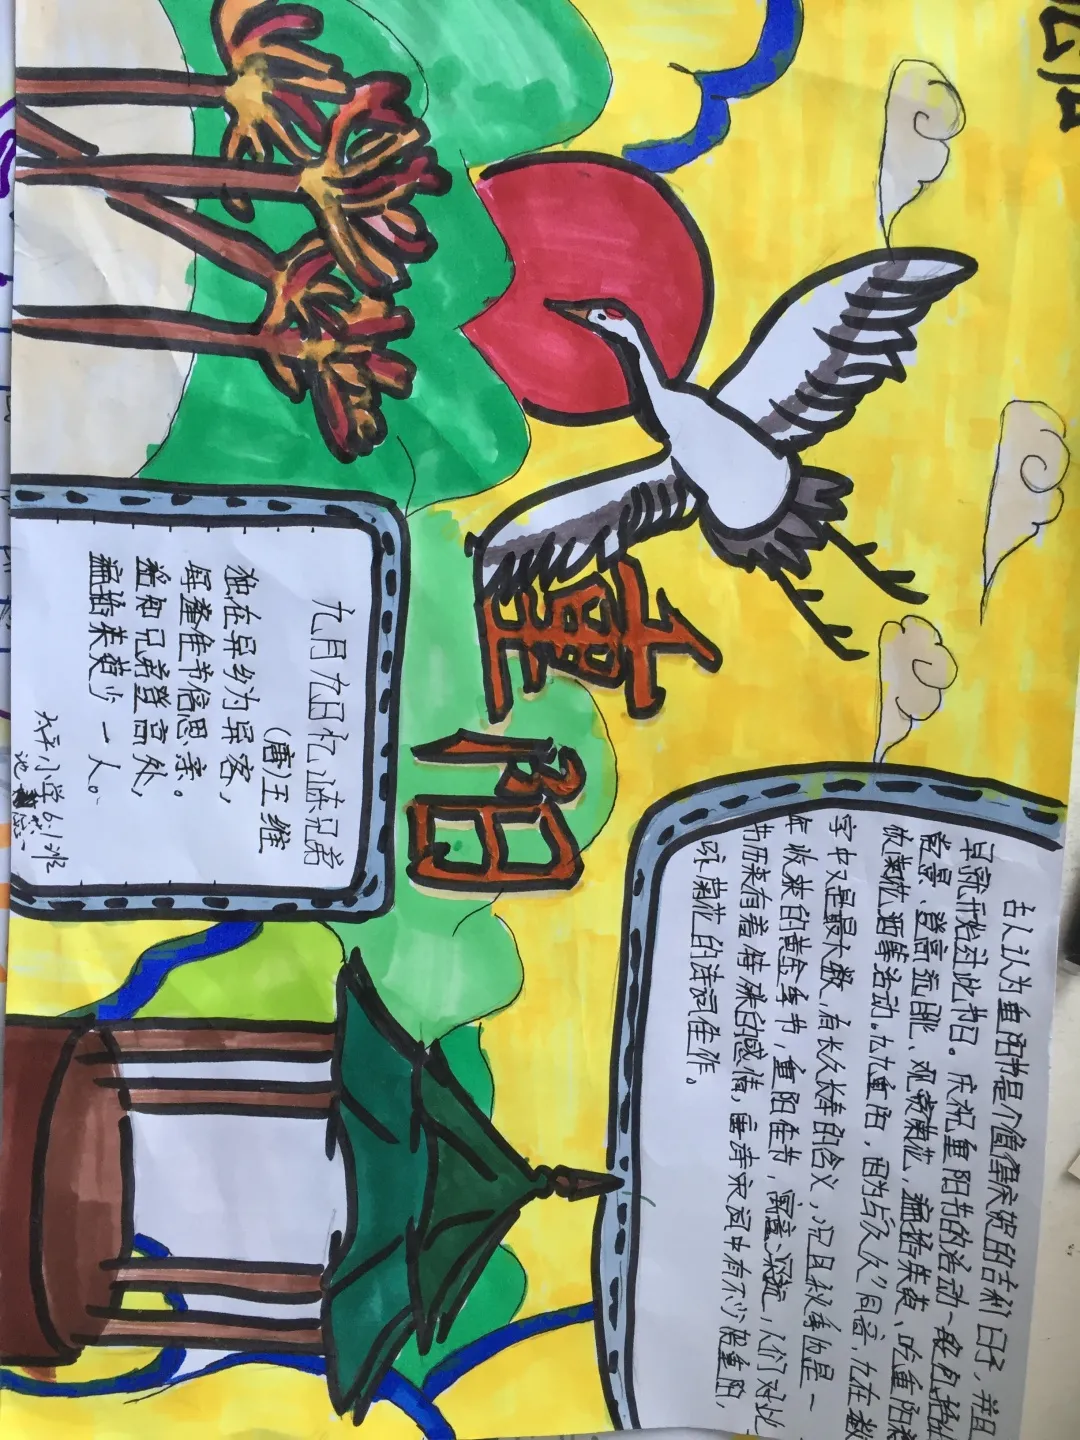 重阳
九月九日忆 兄弟
(唐)王维
独在异乡为异客，
每逢佳节倍思亲。
遥知兄弟登高处，
遍插茱萸少一人。
太平小学6.1班
古人认为重阳节是个值得庆祝的吉利日子，并且
早就开始过此节日。庆祝重阳节的活动一般包括
赏景、登高远眺、观赏菊花、遍插茱萸、吃重阳
饮菊花酒等活动。九九重阳，因为与"久久"同音，九在数
字中又是最大数，有长久长寿的含义，况且秋季也是一
年收获的黄金季节，重阳佳节，寓意深远，人们对此
节历来有着特殊的感情，唐诗宋词中有不少 重阳，
咏菊花的诗词佳作。